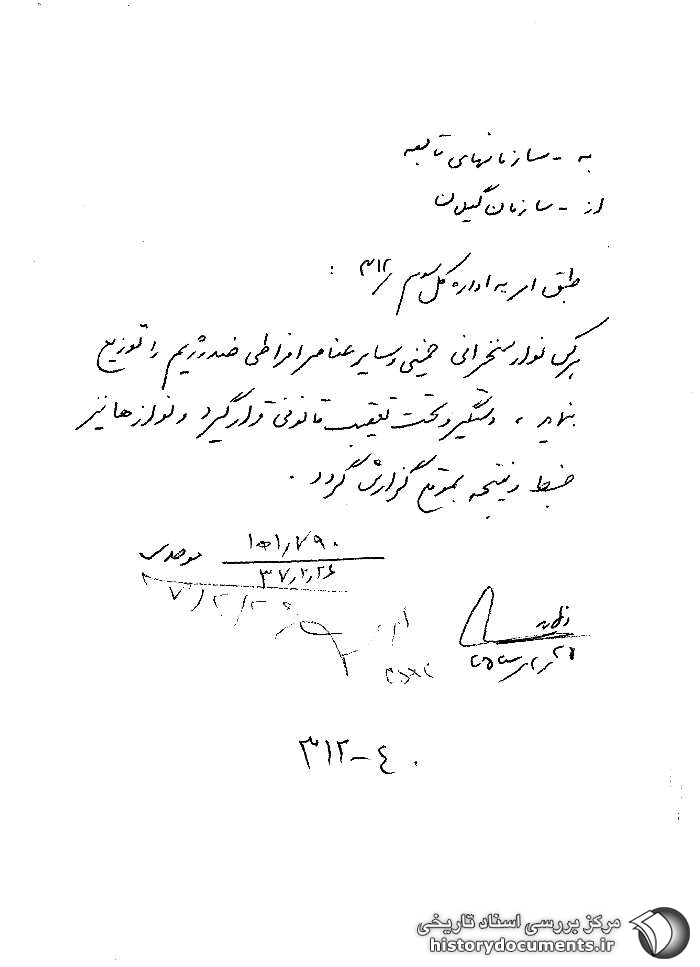 به - سازمانهای تابعه
از - سازمان گیلان
طبق امریه اداره کل سوم / ۳۱۲ :
هرکس نوار سخنرانی خمینی و سایر عناصر افراطی ضد رژیم را توزیع
بنماید ، دستگیر و تحت تعقیب قانونی قرار گیرد و نوارها نیز
ضبط و نتیجه بموقع گزارش گردد .
موحدی
۳۷/۲/۲۶
۳۷/۲/۲۶
۳۱۲-٤۰
مرکز بررسی اسناد تاریخی
historydocuments.ir